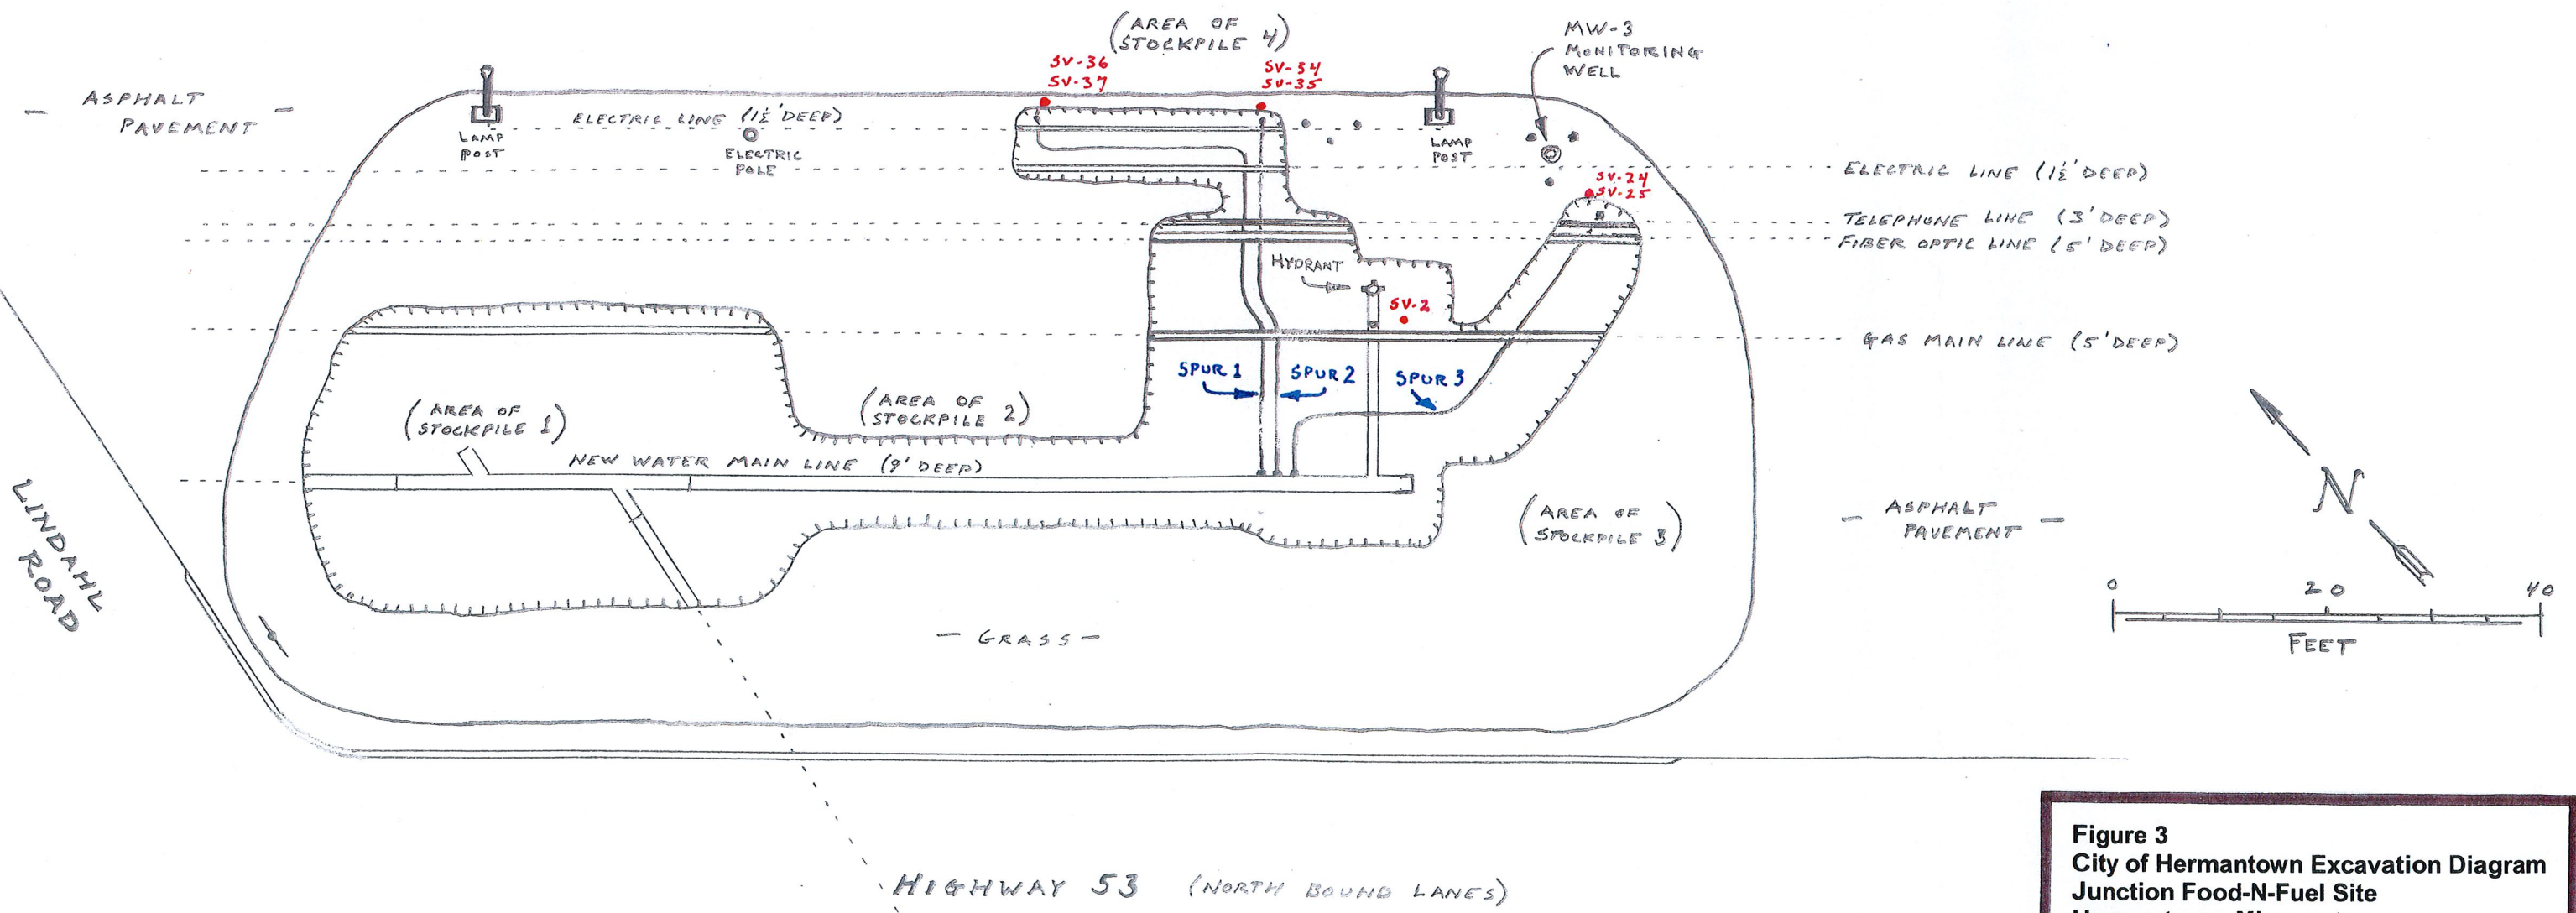 (AREA OF
STOCKPILE 4)
MW-3
MONITORING
WELL
SV-36
SV-37
SV-34
SV-35
- ASPHALT
PAVEMENT -
ELECTRIC LINE (1½' DEEP)
LAMP
POST
ELECTRIC
POLE
LAMP
POST
SV-24
SV-25
ELECTRIC LINE (1½' DEEP)
TELEPHONE LINE (3' DEEP)
FIBER OPTIC LINE (5' DEEP)
HYDRANT
SV-2
GAS MAIN LINE (5' DEEP)
SPUR 1
SPUR 2
SPUR 3
(AREA OF
STOCKPILE 1)
(AREA OF
STOCKPILE 2)
NEW WATER MAIN LINE (9' DEEP)
(AREA OF
STOCKPILE 3)
- ASPHALT
PAVEMENT -
N
LINDAHL
ROAD
0 20 40
FEET
- GRASS -
HIGHWAY 53 (NORTH BOUND LANES)
Figure 3
City of Hermantown Excavation Diagram
Junction Food-N-Fuel Site